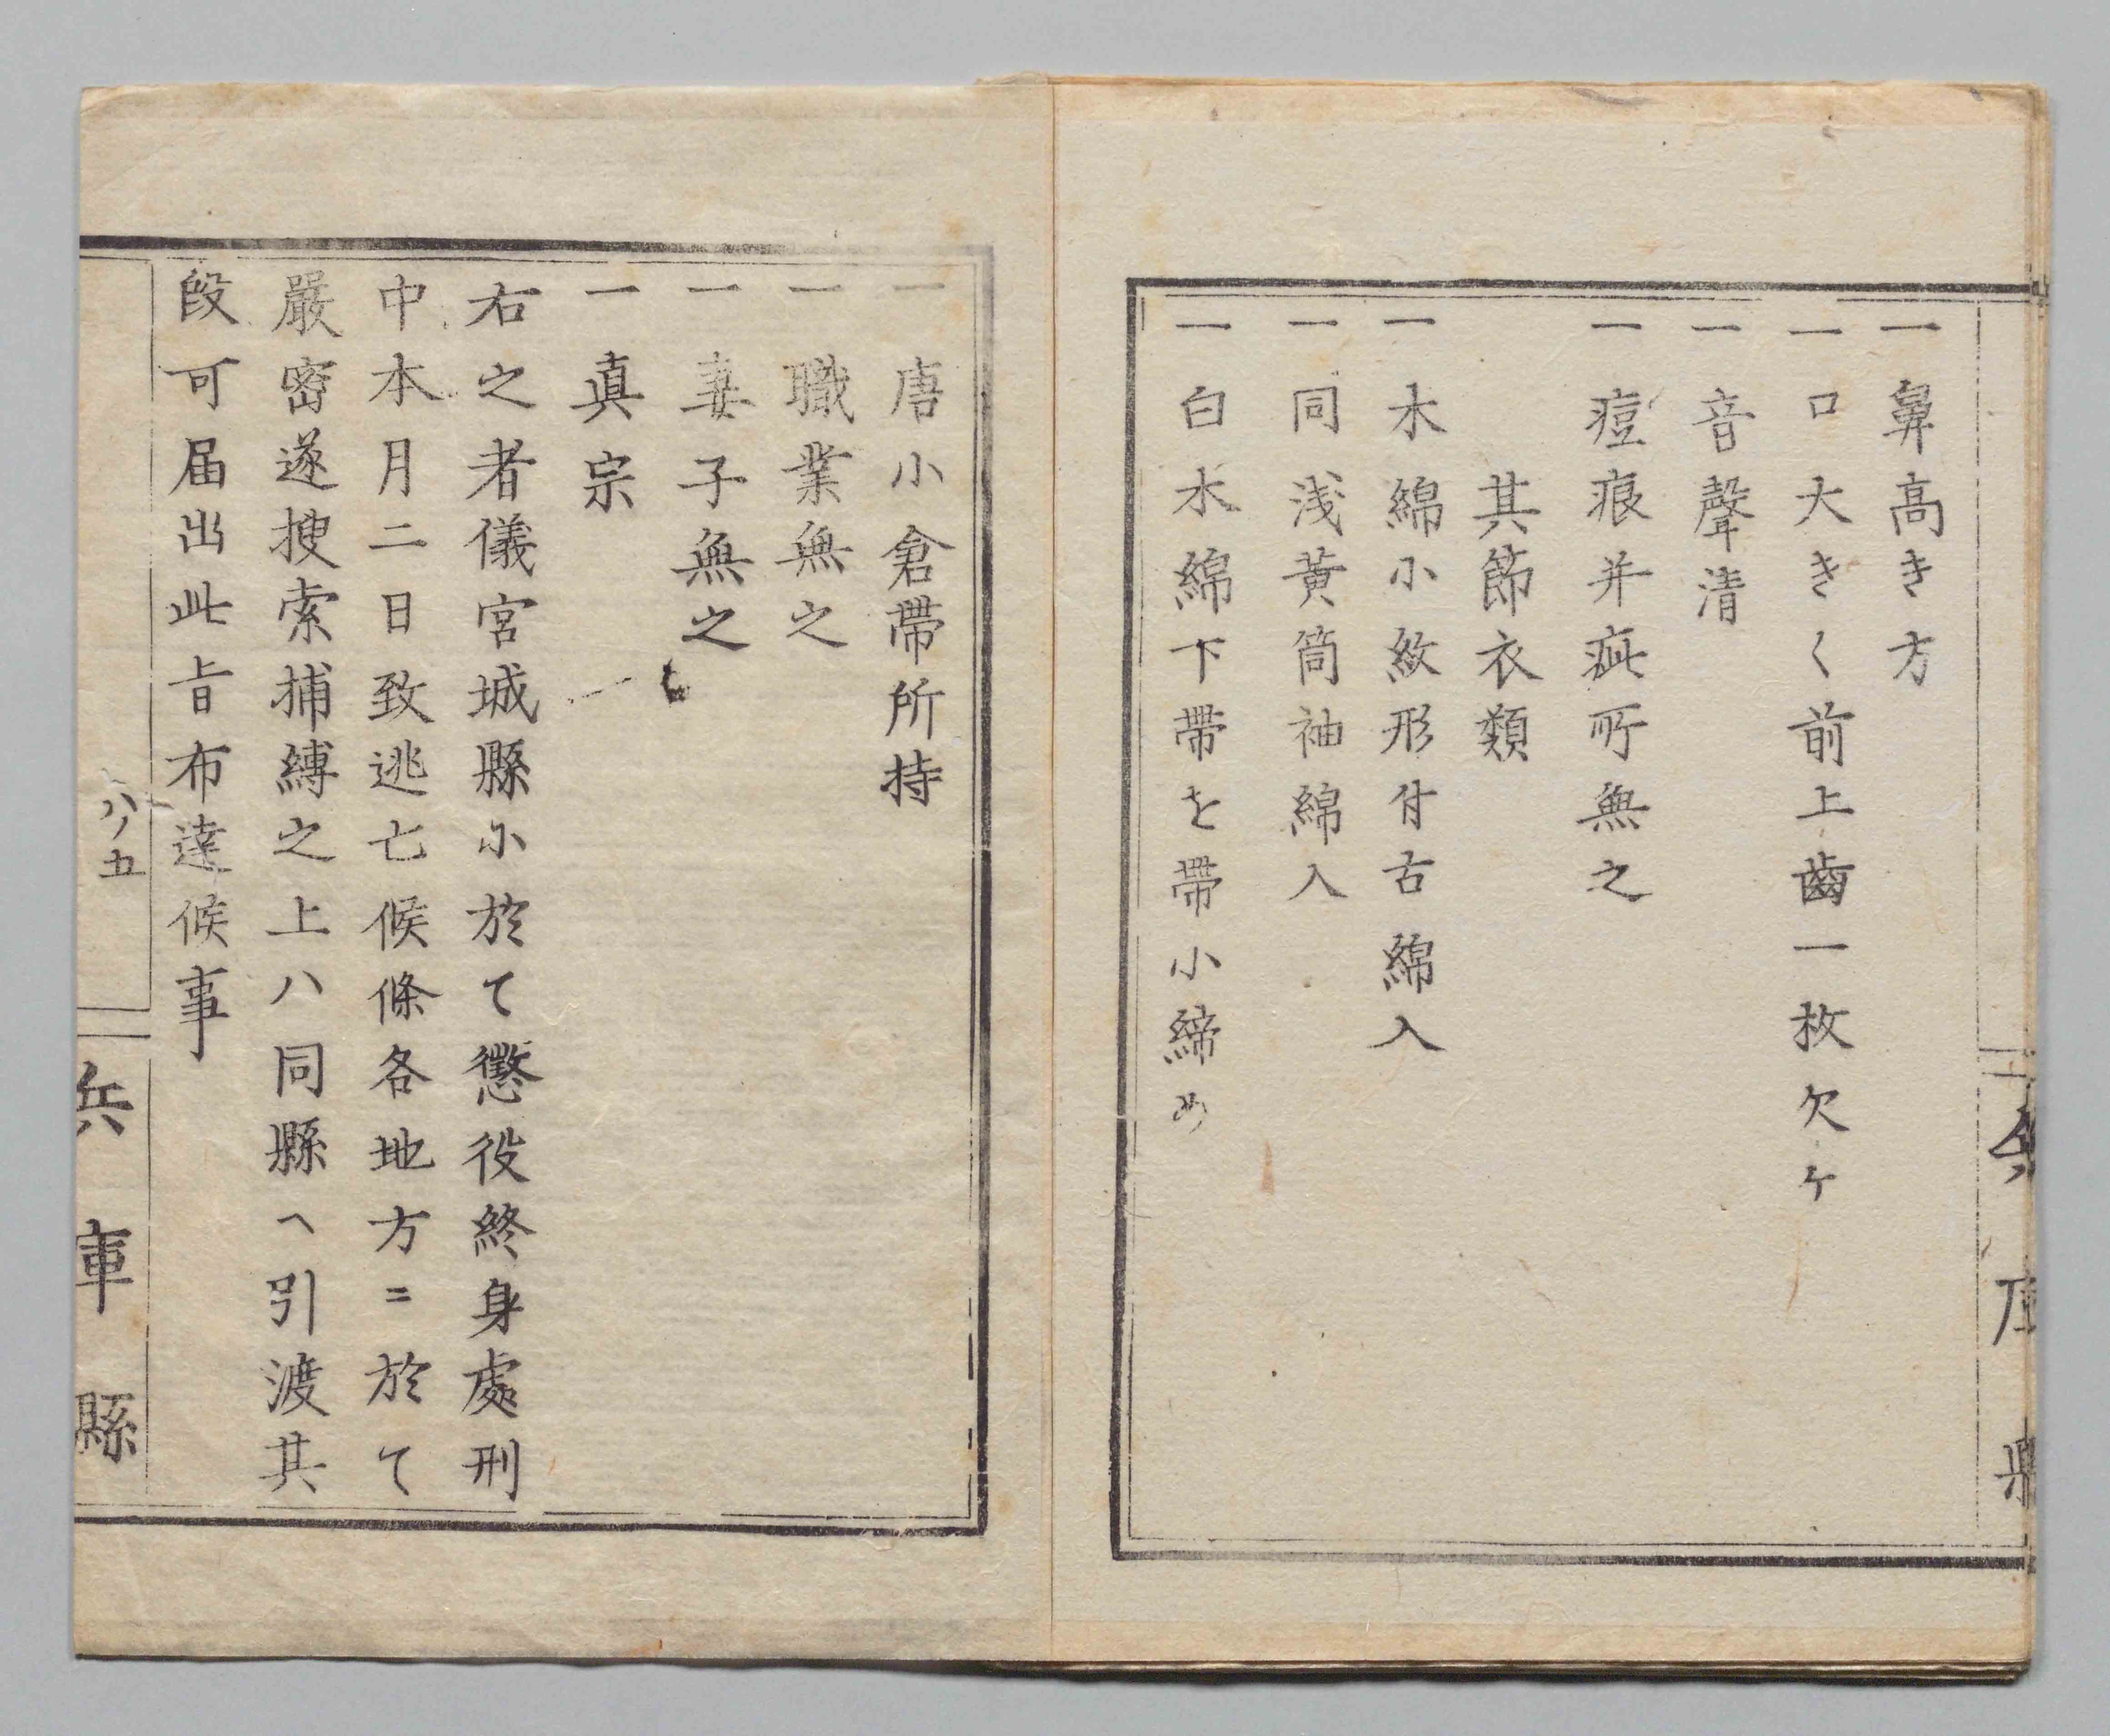 一 鼻高き方
一 口大きく前上齒一枚欠ケ
一 音聲清
一 痘痕并疵所無之
其節衣類
一 木綿小紋形付古綿入
一 同浅黄筒袖綿入
一 白木綿下帶を帶小締め
一 唐小倉帶所持
一 職業無之
一 妻子無之
一 真宗
右之者儀宮城縣小於て懲役終身處刑
中本月二日致逃亡候條各地方ニ於て
嚴密遂搜索捕縛之上ハ同縣ヘ引渡其
段可届出此旨布達候事
八ノ五
兵庫縣